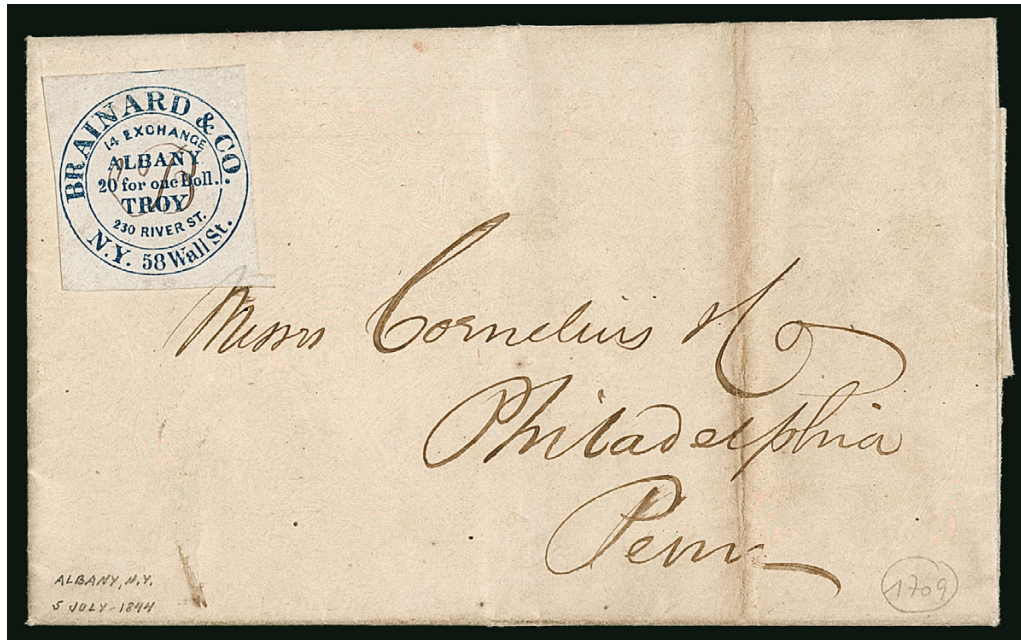 BRAINARD & CO.
14 EXCHANGE
ALBANY
20 for one Doll.
TROY
230 RIVER ST.
N.Y. 58 Wall St.
Messrs Cornelius & Co
Philadelphia
Penn
ALBANY, N.Y.
5 JULY-1844
1709